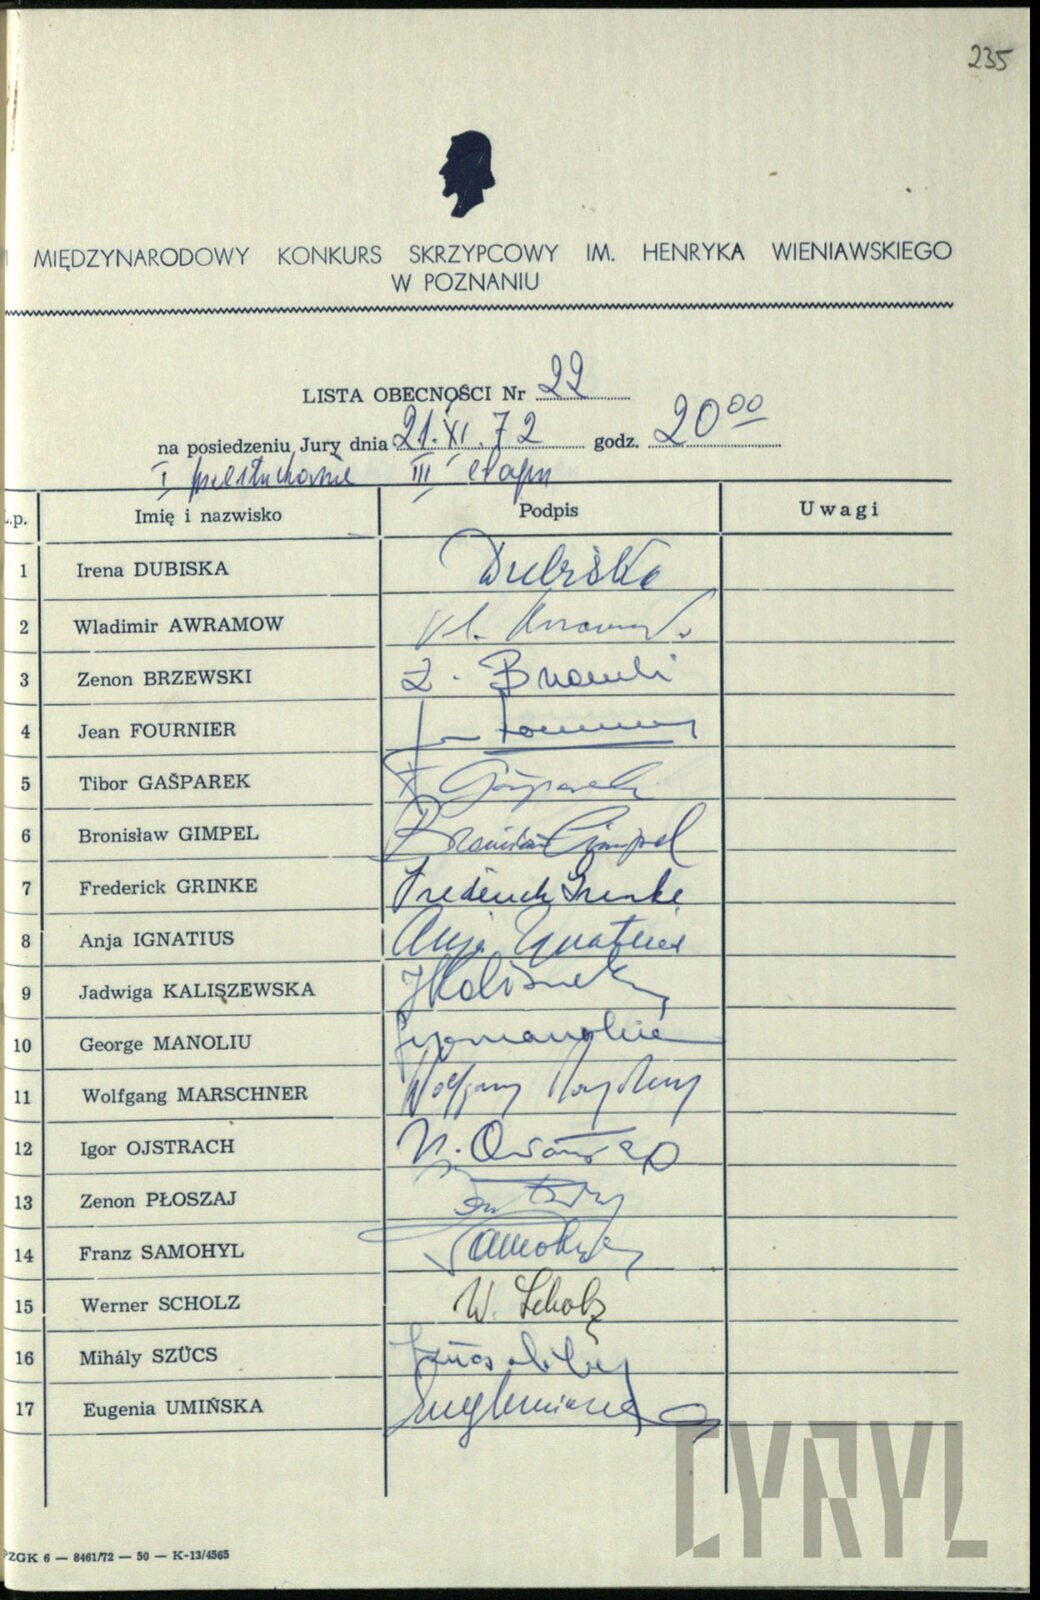 235
MIĘDZYNARODOWY KONKURS SKRZYPCOWY IM. HENRYKA WIENIAWSKIEGO
W POZNANIU
LISTA OBECNOŚCI Nr 22
na posiedzeniu Jury dnia 21.XI.72 godz. 20⁰⁰
I przesłuchanie III etapu
L.p. Imię i nazwisko Podpis Uwagi
1 Irena DUBISKA Dubiska
2 Wladimir AWRAMOW Vl.
3 Zenon BRZEWSKI Z. Brzewski
4 Jean FOURNIER
5 Tibor GAŠPAREK Gašparek
6 Bronisław GIMPEL Bronisław Gimpel
7 Frederick GRINKE Frederick Grinke
8 Anja IGNATIUS Anja Ignatius
9 Jadwiga KALISZEWSKA
10 George MANOLIU
11 Wolfgang MARSCHNER Wolfgang
12 Igor OJSTRACH
13 Zenon PŁOSZAJ
14 Franz SAMOHYL Samohyl
15 Werner SCHOLZ W. Scholz
16 Mihály SZÜCS
17 Eugenia UMIŃSKA
CYRYL
PZGK 6 — 8461/72 — 50 — K-13/4565